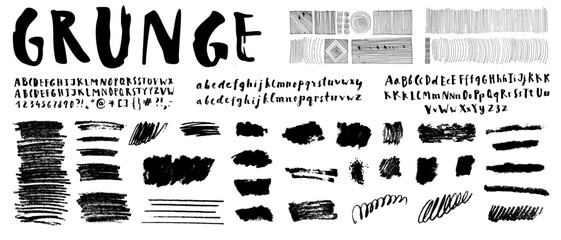 GRUNGE
ABCDEFGHIJKLMNOPQRSSTUVWX
ABCDEFGHIJKLMNOPQRSTYYZUVW
1234567890?!,"@*[]{}#?!,-
abcdefghijklmnopqrstuvwxy
abcdefghijklmnopqrstuvwz
AaBbCcDdEeEFffgGHhIiJjKkK
KKkLlMmNnOoPpQqRrSsTtUu
VvWwXxYyZzz